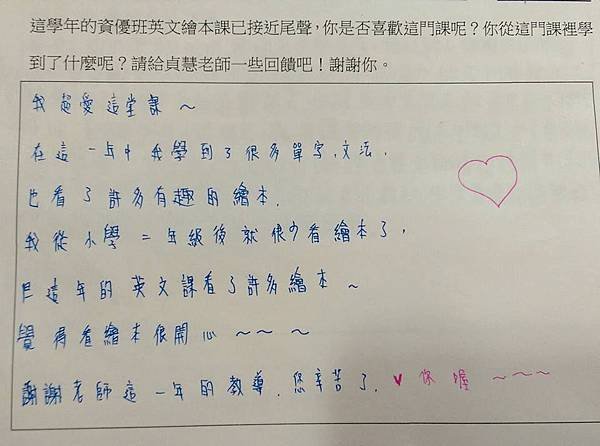 這學年的資優班英文繪本課已接近尾聲，你是否喜歡這門課呢？你從這門課裡學
到了什麼呢？請給貞慧老師一些回饋吧！謝謝你。
我超愛這堂課～
在這一年中我學到了很多單字、文法，
也看了許多有趣的繪本.
我從小學二年級後就很少看繪本了，
這年的英文課看了許多繪本～
覺得看繪本很開心～～～
謝謝老師這一年的教導.您辛苦了.♥你喔～～～